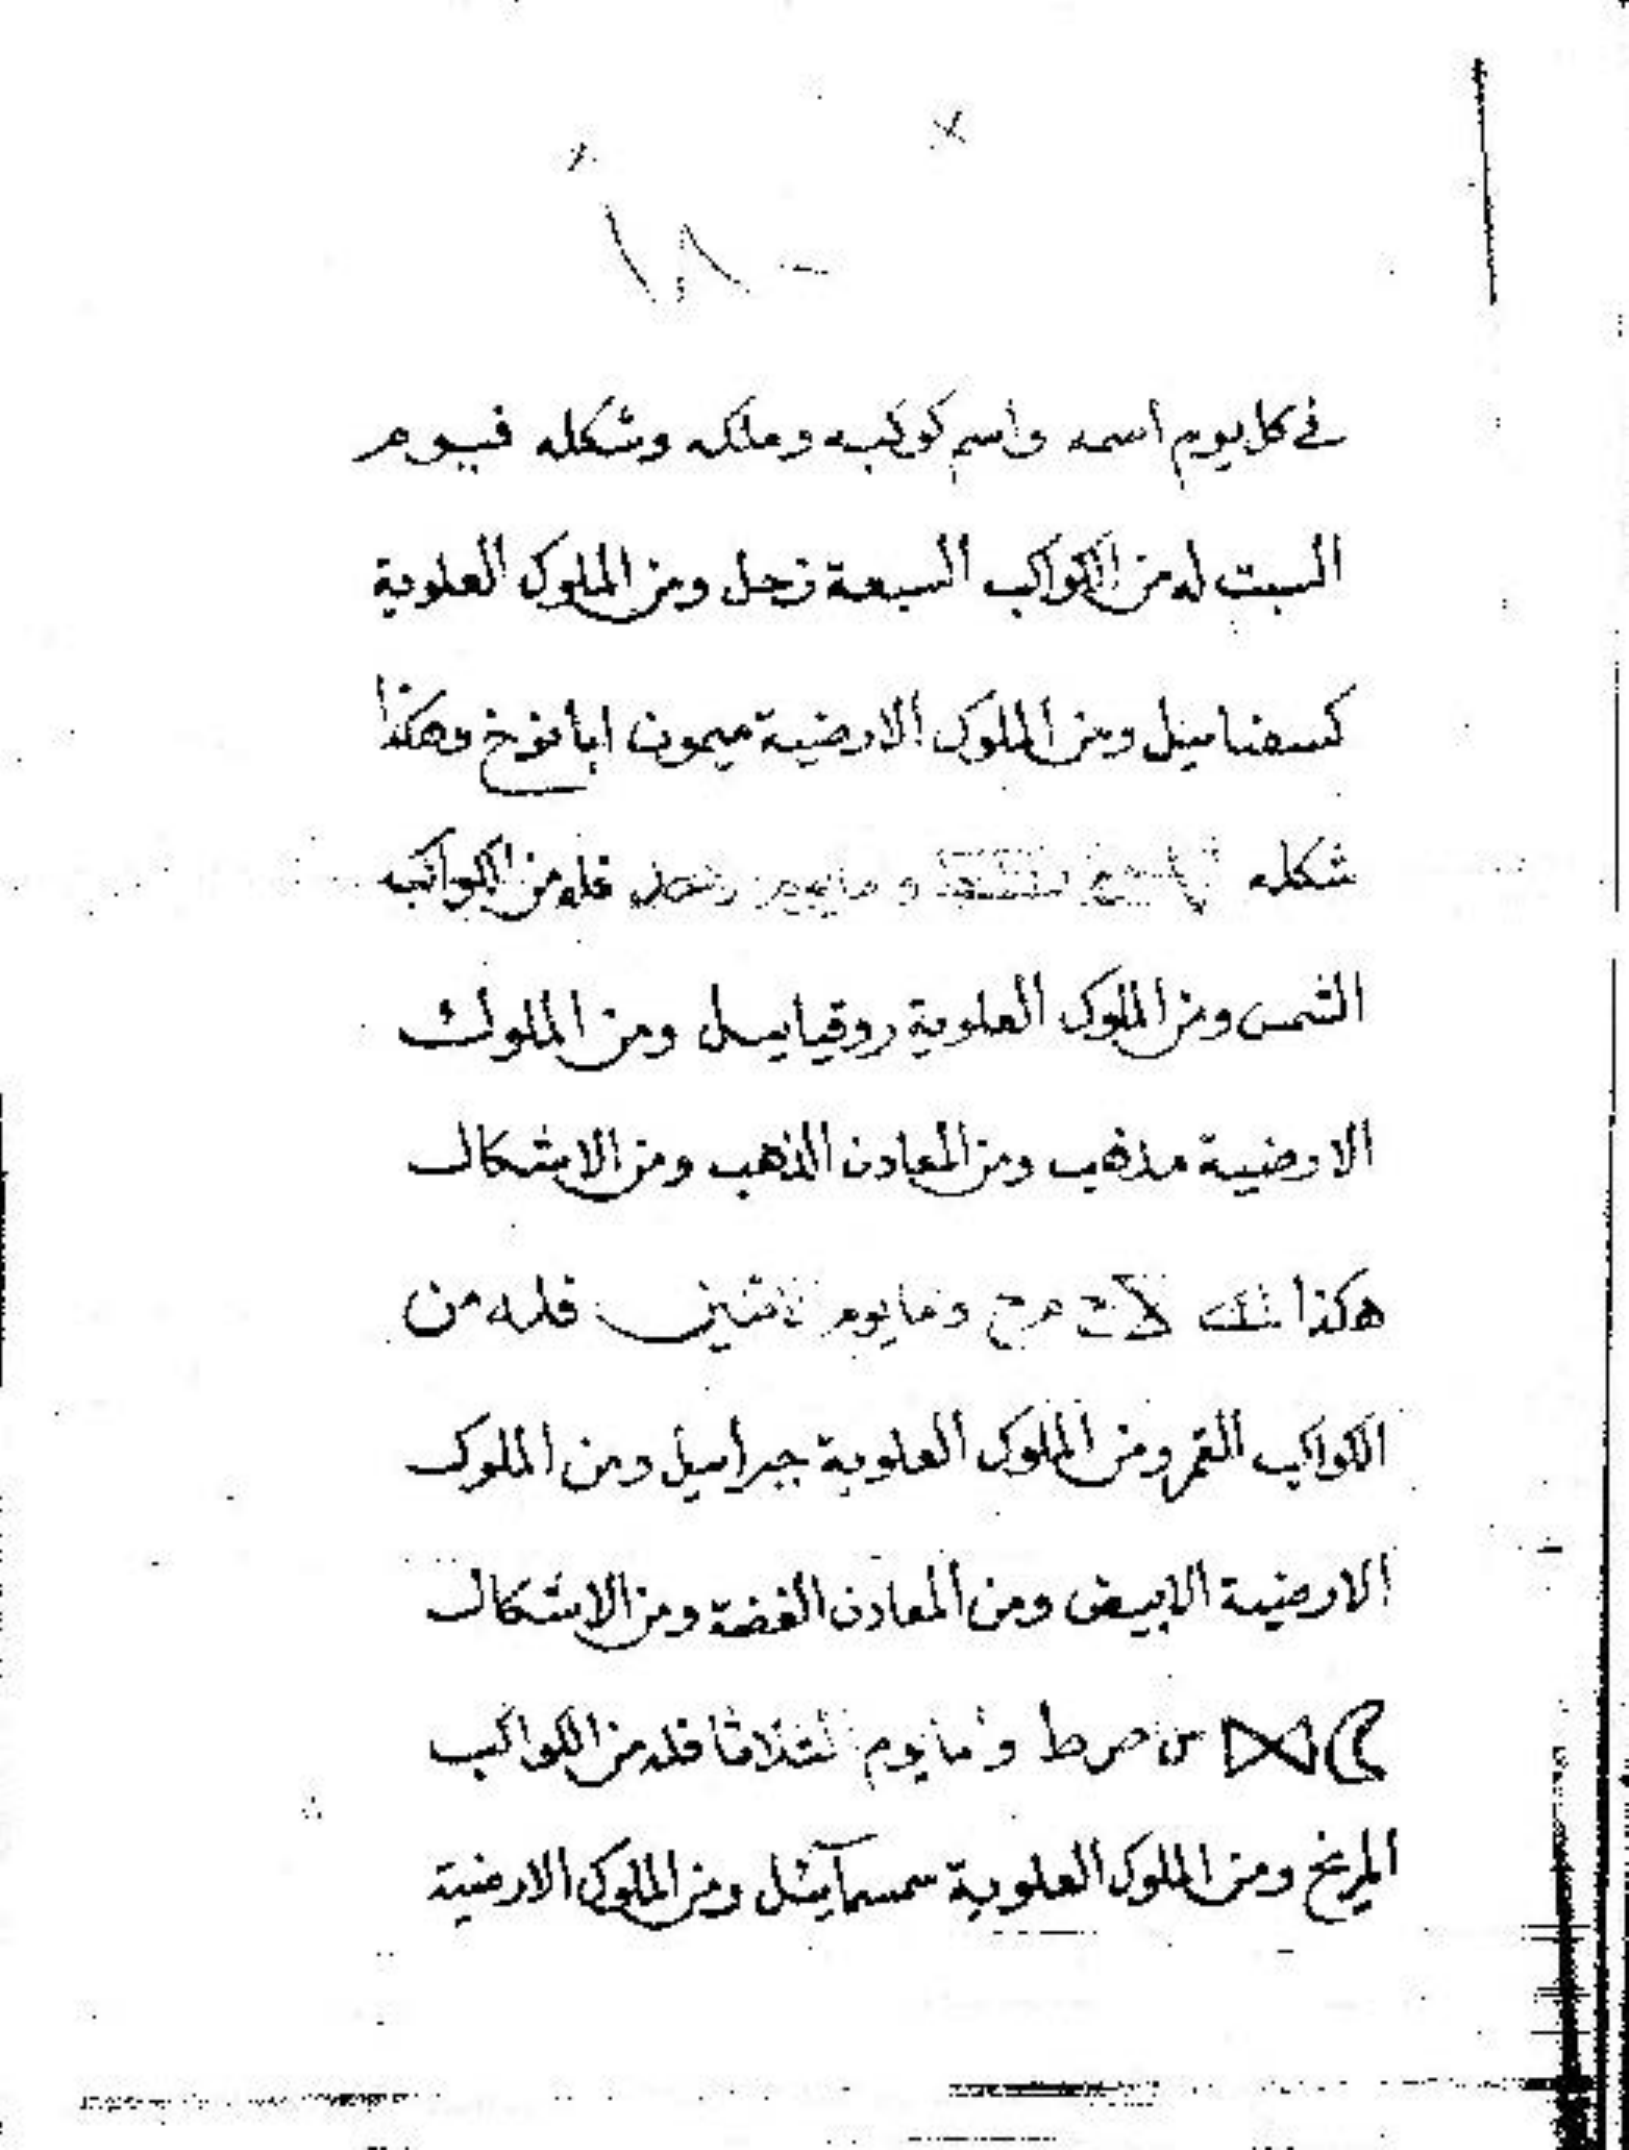 في كل يوم اسمه واسم كوكبه وملكه وشكله فيوم
السبت له من الكواكب السبعة زحل ومن الملوك العلوية
كسفياييل ومن الملوك الارضية ميمون ابانوخ وهكذا
شكله فله من الكواكب
الشمس ومن الملوك العلوية روقياييل ومن الملوك
الارضية مذهب ومن المعادن الذهب ومن الاشكال
هكذا وما يوم الاثنين فله من
الكواكب القمر ومن الملوك العلوية جبراييل ومن الملوك
الارضية الابيض ومن المعادن الفضة ومن الاشكال
وما يوم الثلاثا فله من الكواكب
المريخ ومن الملوك العلوية سمسمآئيل ومن الملوك الارضية